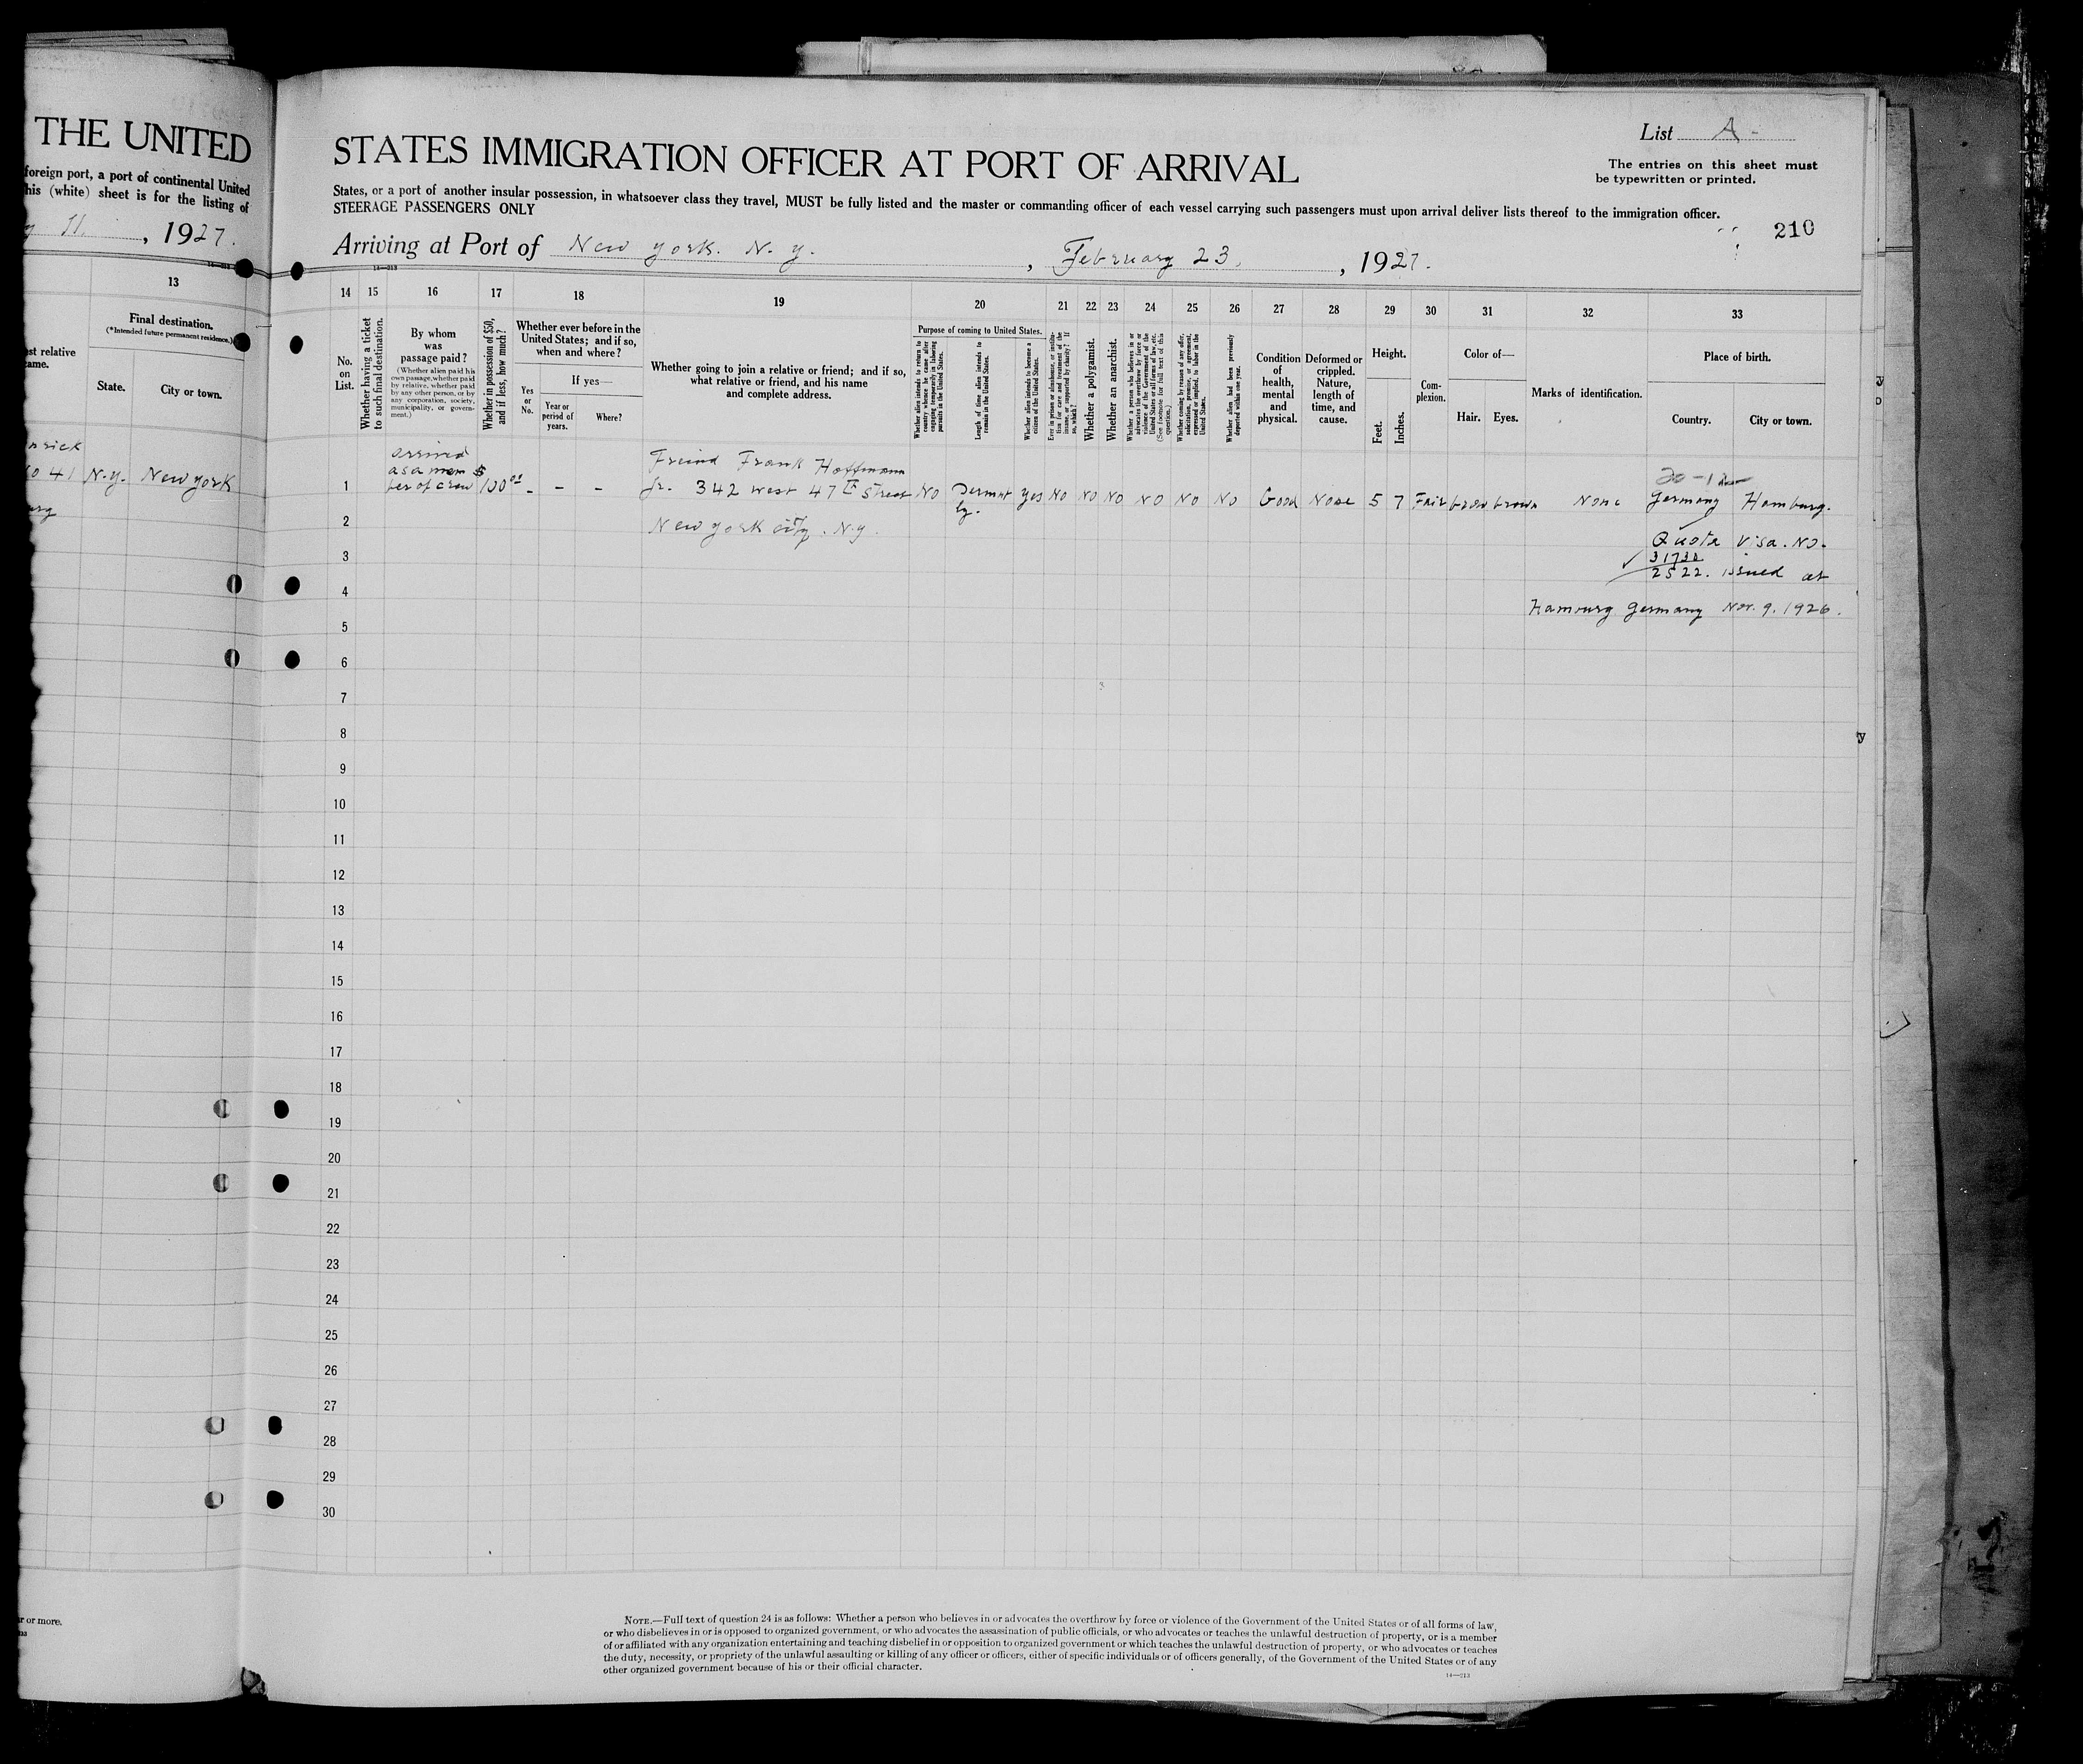 THE UNITED
foreign port, a port of continental United
his (white) sheet is for the listing of
11, 1927.
13
Final destination.
(*Intended future permanent residence.)
State.
City or town.
N.Y. New York
r or more.
List A-
The entries on this sheet must
be typewritten or printed.
STATES IMMIGRATION OFFICER AT PORT OF ARRIVAL
States, or a port of another insular possession, in whatsoever class they travel, MUST be fully listed and the master or commanding officer of each vessel carrying such passengers must upon arrival deliver lists thereof to the immigration officer.
STEERAGE PASSENGERS ONLY
210
Arriving at Port of New York. N.Y. , February 23, , 1927.
14—213
14 15 16 17 18 19 20 21 22 23 24 25 26 27 28 29 30 31 32 33
No. on List.
Whether having a ticket to such final destination.
By whom was passage paid?
(Whether alien paid his own passage, whether paid by relative, whether paid by any other person, or by any corporation, society, municipality, or government.)
Whether in possession of $50, and if less, how much?
Whether ever before in the United States; and if so, when and where?
Yes or No.
If yes—
Year or period of years.
Where?
Whether going to join a relative or friend; and if so, what relative or friend, and his name and complete address.
Purpose of coming to United States.
Whether alien intends to return to country whence he came after engaging temporarily in laboring pursuits in the United States.
Length of time alien intends to remain in the United States.
Whether alien intends to become a citizen of the United States.
Ever in prison or almshouse, or institution for care and treatment of the insane, or supported by charity? If so, which?
Whether a polygamist.
Whether an anarchist.
Whether a person who believes in or advocates the overthrow by force or violence of the Government of the United States or all forms of law, etc. (See footnote for full text of this question.)
Whether coming by reason of any offer, solicitation, promise, or agreement, expressed or implied, to labor in the United States.
Whether alien had been previously deported within one year.
Condition of health, mental and physical.
Deformed or crippled. Nature, length of time, and cause.
Height.
Feet.
Inches.
Complexion.
Color of—
Hair.
Eyes.
Marks of identification.
Place of birth.
Country.
City or town.
arrived
as a mem
ber of crew
$100.00
- - -
Freind Frank Hoffmann
Jr. 342 West 47th Street
New York City. N.Y.
1 No Permnt
ly. Yes No No No No No No Good None 5 7 Fair brow brown None Germany Hamburg.
Quota Visa. No.
2522. issued at
Hamburg Germany Nov. 9. 1926.
2
3
4
5
6
7
8
9
10
11
12
13
14
15
16
17
18
19
20
21
22
23
24
25
26
27
28
29
30
NOTE.—Full text of question 24 is as follows: Whether a person who believes in or advocates the overthrow by force or violence of the Government of the United States or of all forms of law,
or who disbelieves in or is opposed to organized government, or who advocates the assassination of public officials, or who advocates or teaches the unlawful destruction of property, or is a member
of or affiliated with any organization entertaining and teaching disbelief in or opposition to organized government or which teaches the unlawful destruction of property, or who advocates or teaches
the duty, necessity, or propriety of the unlawful assaulting or killing of any officer or officers, either of specific individuals or of officers generally, of the Government of the United States or of any
other organized government because of his or their official character.
14—213